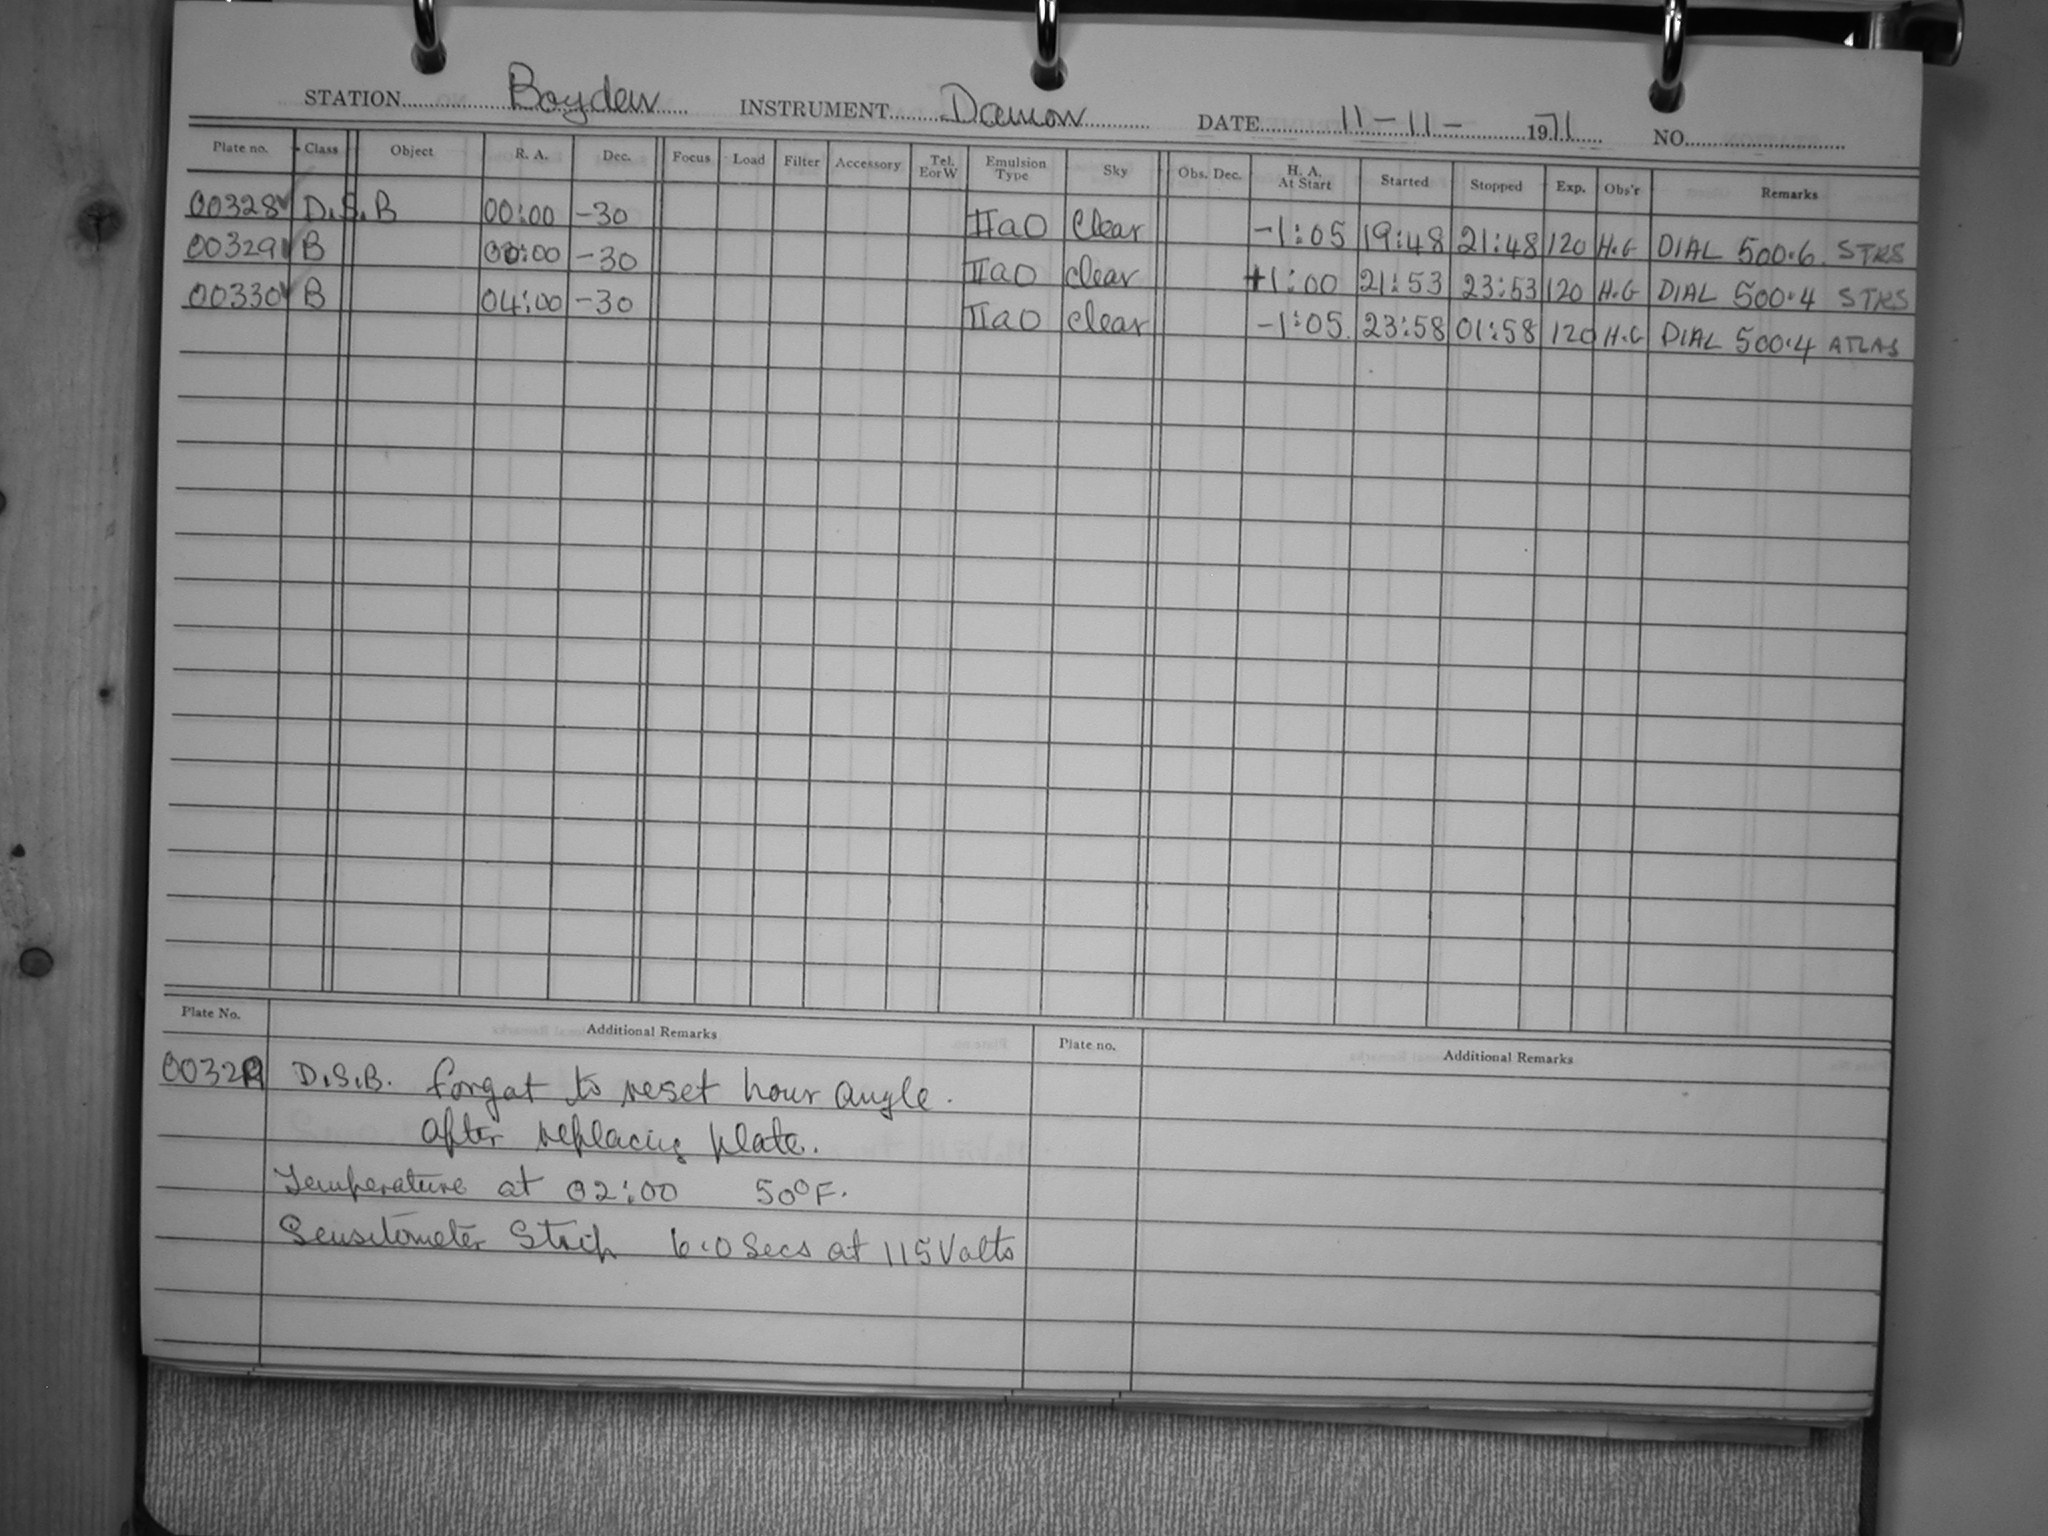 STATION Boyden INSTRUMENT Damon DATE 11-11- 1971 NO
Plate no. Class Object R. A. Dec. Focus Load Filter Accessory Tel. E or W Emulsion Type Sky Obs. Dec. H. A. At Start Started Stopped Exp. Obs'r Remarks
00328 D.S.B 00:00 -30 IIaO Clear -1:05 19:48 21:48 120 H.G DIAL 500.6 STKS
00329 B 00:00 -30 IIaO Clear +1:00 21:53 23:53 120 H.G DIAL 500.4 STKS
00330 B 04:00 -30 IIaO Clear -1:05 23:58 01:58 120 H.G DIAL 500.4 ATLAS
Plate No. Additional Remarks Plate no. Additional Remarks
D.S.B. forgat to reset hour angle.
after replacing plate.
Temperature at 02:00 50°F.
Sensitometer Strip 6.0 Secs at 115 Volts